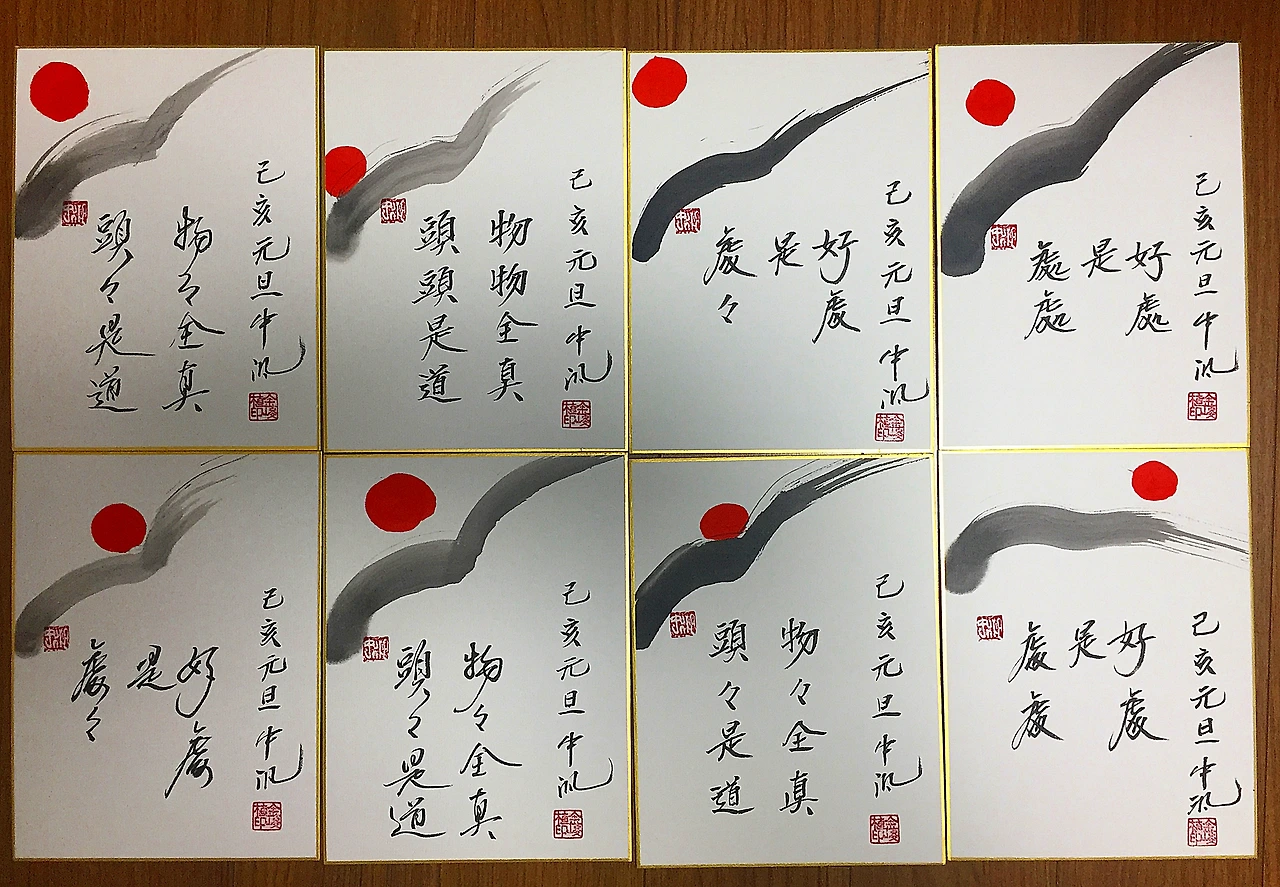 己亥元旦中汎
物々全真
頭々是道
己亥元旦中汎
物物全真
頭頭是道
己亥元旦中汎
好處
是
處々
己亥元旦中汎
好處
是
處處
己亥元旦中汎
好處
是
處々
己亥元旦中汎
物々全真
頭々是道
己亥元旦中汎
物々全真
頭々是道
己亥元旦中汎
好處
是
處處